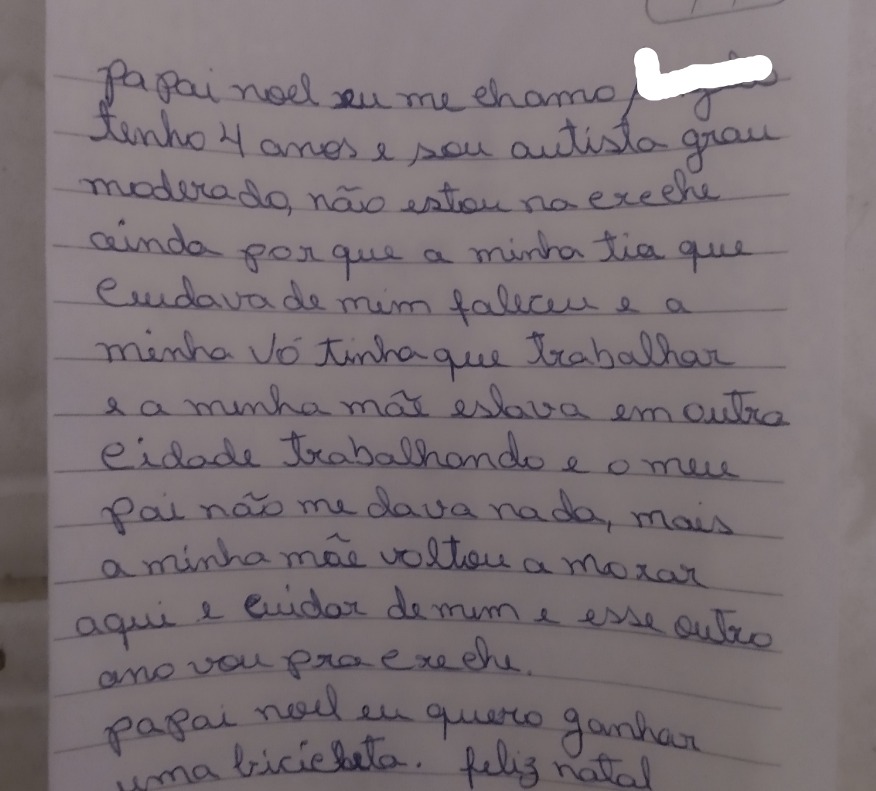 papai noel eu me chamo,
tenho 4 anos e sou autista grau
moderado, não estou na creche
ainda por que a minha tia que
cuidava de mim faleceu e a
minha vó tinha que trabalhar
e a minha mãe estava em outra
cidade trabalhando e o meu
pai não me dava nada, mais
a minha mãe voltou a morar
aqui e cuidar de mim e esse outro
ano vou pra creche.
papai noel eu quero ganhar
uma bicicleta. feliz natal